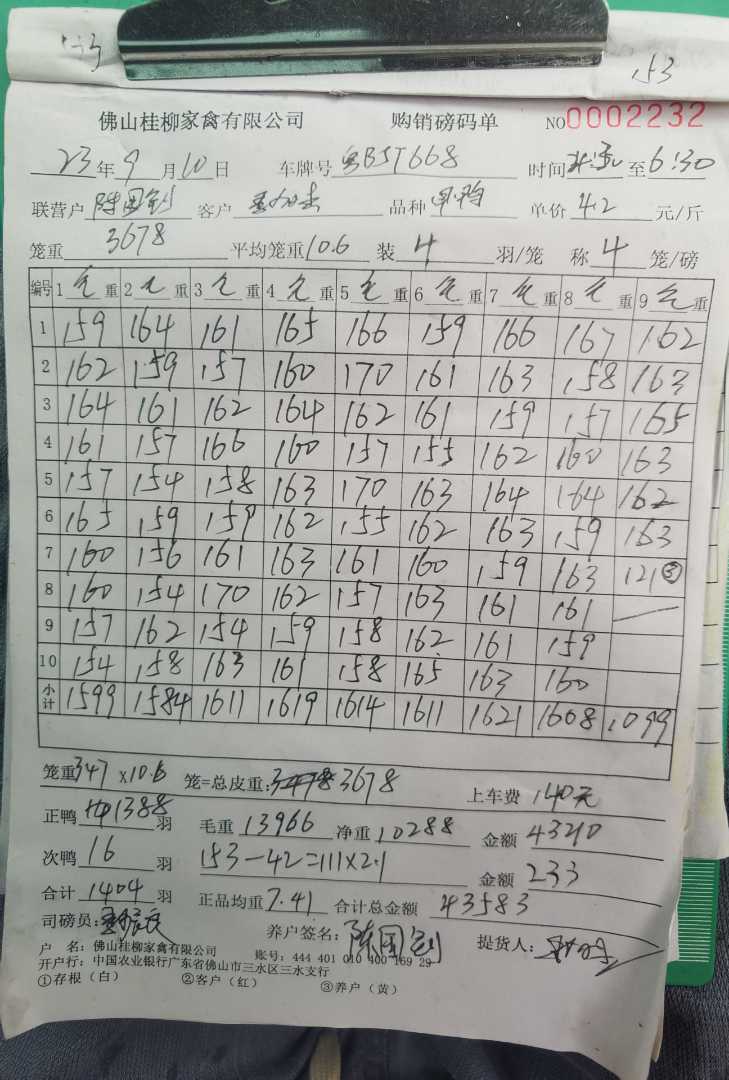 153
佛山桂柳家禽有限公司 购销磅码单 NO0002232
23年9月10日 车牌号粤BJT668 时间 至6:30
联营户 陈国钊 客户 品种 单价4.2元/斤
笼重3678 平均笼重10.6 装4羽/笼 称4笼/磅
编号 1毛重 2毛重 3毛重 4毛重 5毛重 6毛重 7毛重 8毛重 9毛重
1 159 164 161 165 166 159 166 167 162
2 162 159 157 160 170 161 163 158 163
3 164 161 162 164 162 161 159 157 165
4 161 157 166 160 157 155 162 160 163
5 157 154 158 163 170 163 164 164 162
6 165 159 159 162 155 162 163 159 163
7 160 156 161 163 161 160 159 163 121③
8 160 154 170 162 157 163 161 161
9 157 162 154 159 158 162 161 159
10 154 158 163 161 158 165 163 160
小计 1599 1584 1611 1619 1614 1611 1621 1608 1099
笼重347×10.6 笼=总皮重:3678 上车费 140元
正鸭1388羽 毛重13966 净重10288 金额43210
次鸭16羽 153-42=111×2.1 金额233
合计1404羽 正品均重7.41 合计总金额43583
司磅员: 养户签名:陈国钊 提货人:
户 名:佛山桂柳家禽有限公司 账号:444 401 010 400 169 29
开户行:中国农业银行广东省佛山市三水区三水支行
①存根(白) ②客户(红) ③养户(黄)